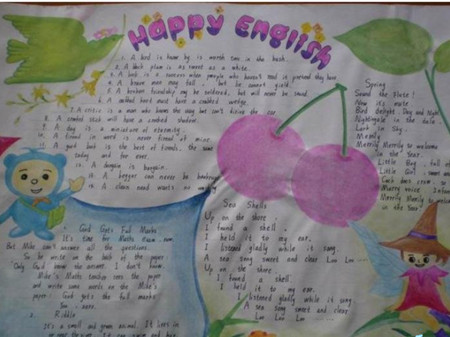 Happy English
1. A bird in hand is worth two in the bush.
2. A black plum is as sweet as a white.
4. A brave man may fall, but he cannot yield.
5. A broken friendship may be soldered, but will never be sound
6. A cracked bell must have a cracked
7. A critic is a man who knows the way but can't drive the car.
8. A crooked stick will have a crooked shadow.
9. A day is a miniature of eternity.
10. A friend in need is never friend of mine.
11. A good book is the best of friends, the same
today and for ever.
12. A bargain is bargain.
13. A beggar can never be bankrupt
14. A clean hand wants no washing
Spring
Sound the Flute!
Now it's mute
Bird delight, Day and Night
Nightingale in the dale
Lark in Sky
Merrily
Merrily Merrily to welcome
in the Year.
Little Boy, full of
Little Girl, sweet and
Cock does crow, so
Merry voice, Infant
Merrily Merrily to
in the Year
God Gets Full Marks
It's time for Maths Exam now
But Mike can't answer all the questions.
So he writes on the back of the paper
Only God knows the answer. I don't know.
Mike's Maths teacher sees the paper
and writes some words on the Mike's
paper. God gets the full marks
2. Riddle
It's a small and green animal. It lives in
Sea Shells
Up on the shore
I found a shell.
I held it to my ear.
I listened gladly while it sang.
A sea song sweet and clear
Up on the shore.
I found a shell.
I held it to my ear.
I listened gladly while it sang
A sea song sweet and clear